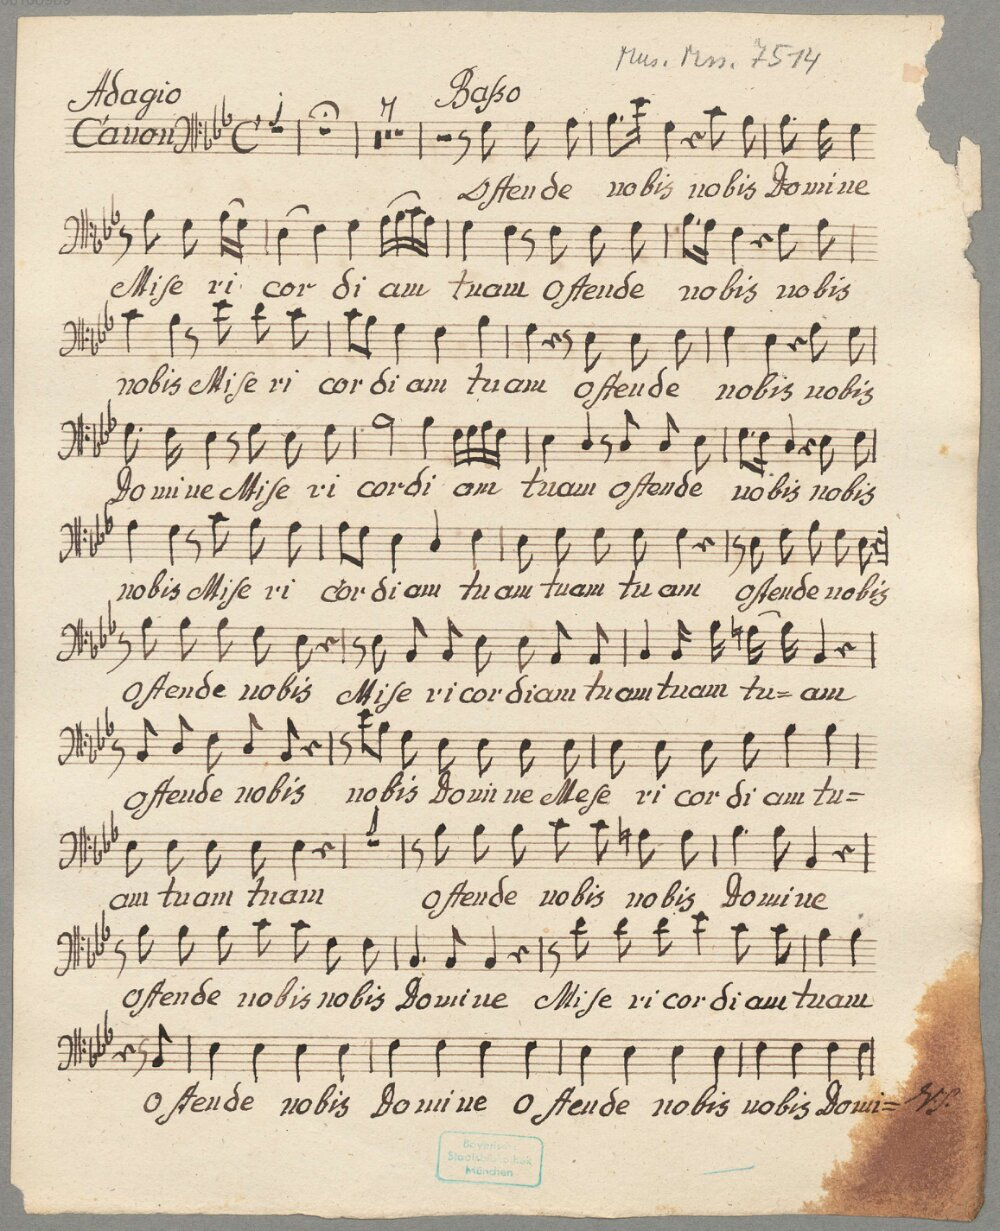 Mus. Mss. 7514
Adagio Basso
Canon
Ostende nobis nobis Domine
Mise ri cor di am tuam Ostende nobis nobis
nobis Mise ri cor di am tu am ostende nobis nobis
Do mi ne Mise ri cordi am tuam ostende nobis nobis
nobis Mise ri cor di am tu am tuam tu am ostende nobis
Ostende nobis Mise ri cor diam tuam tuam tu= am
ostende nobis nobis Domi ne Mese ri cor di am tu=
am tu am tuam ostende nobis nobis Domi ne
ostende nobis nobis Domi ne Mise ri cor di am tuam
O stende nobis Do mi ne O stende nobis nobis Domi=
Bayerische
Staatsbibliothek
München